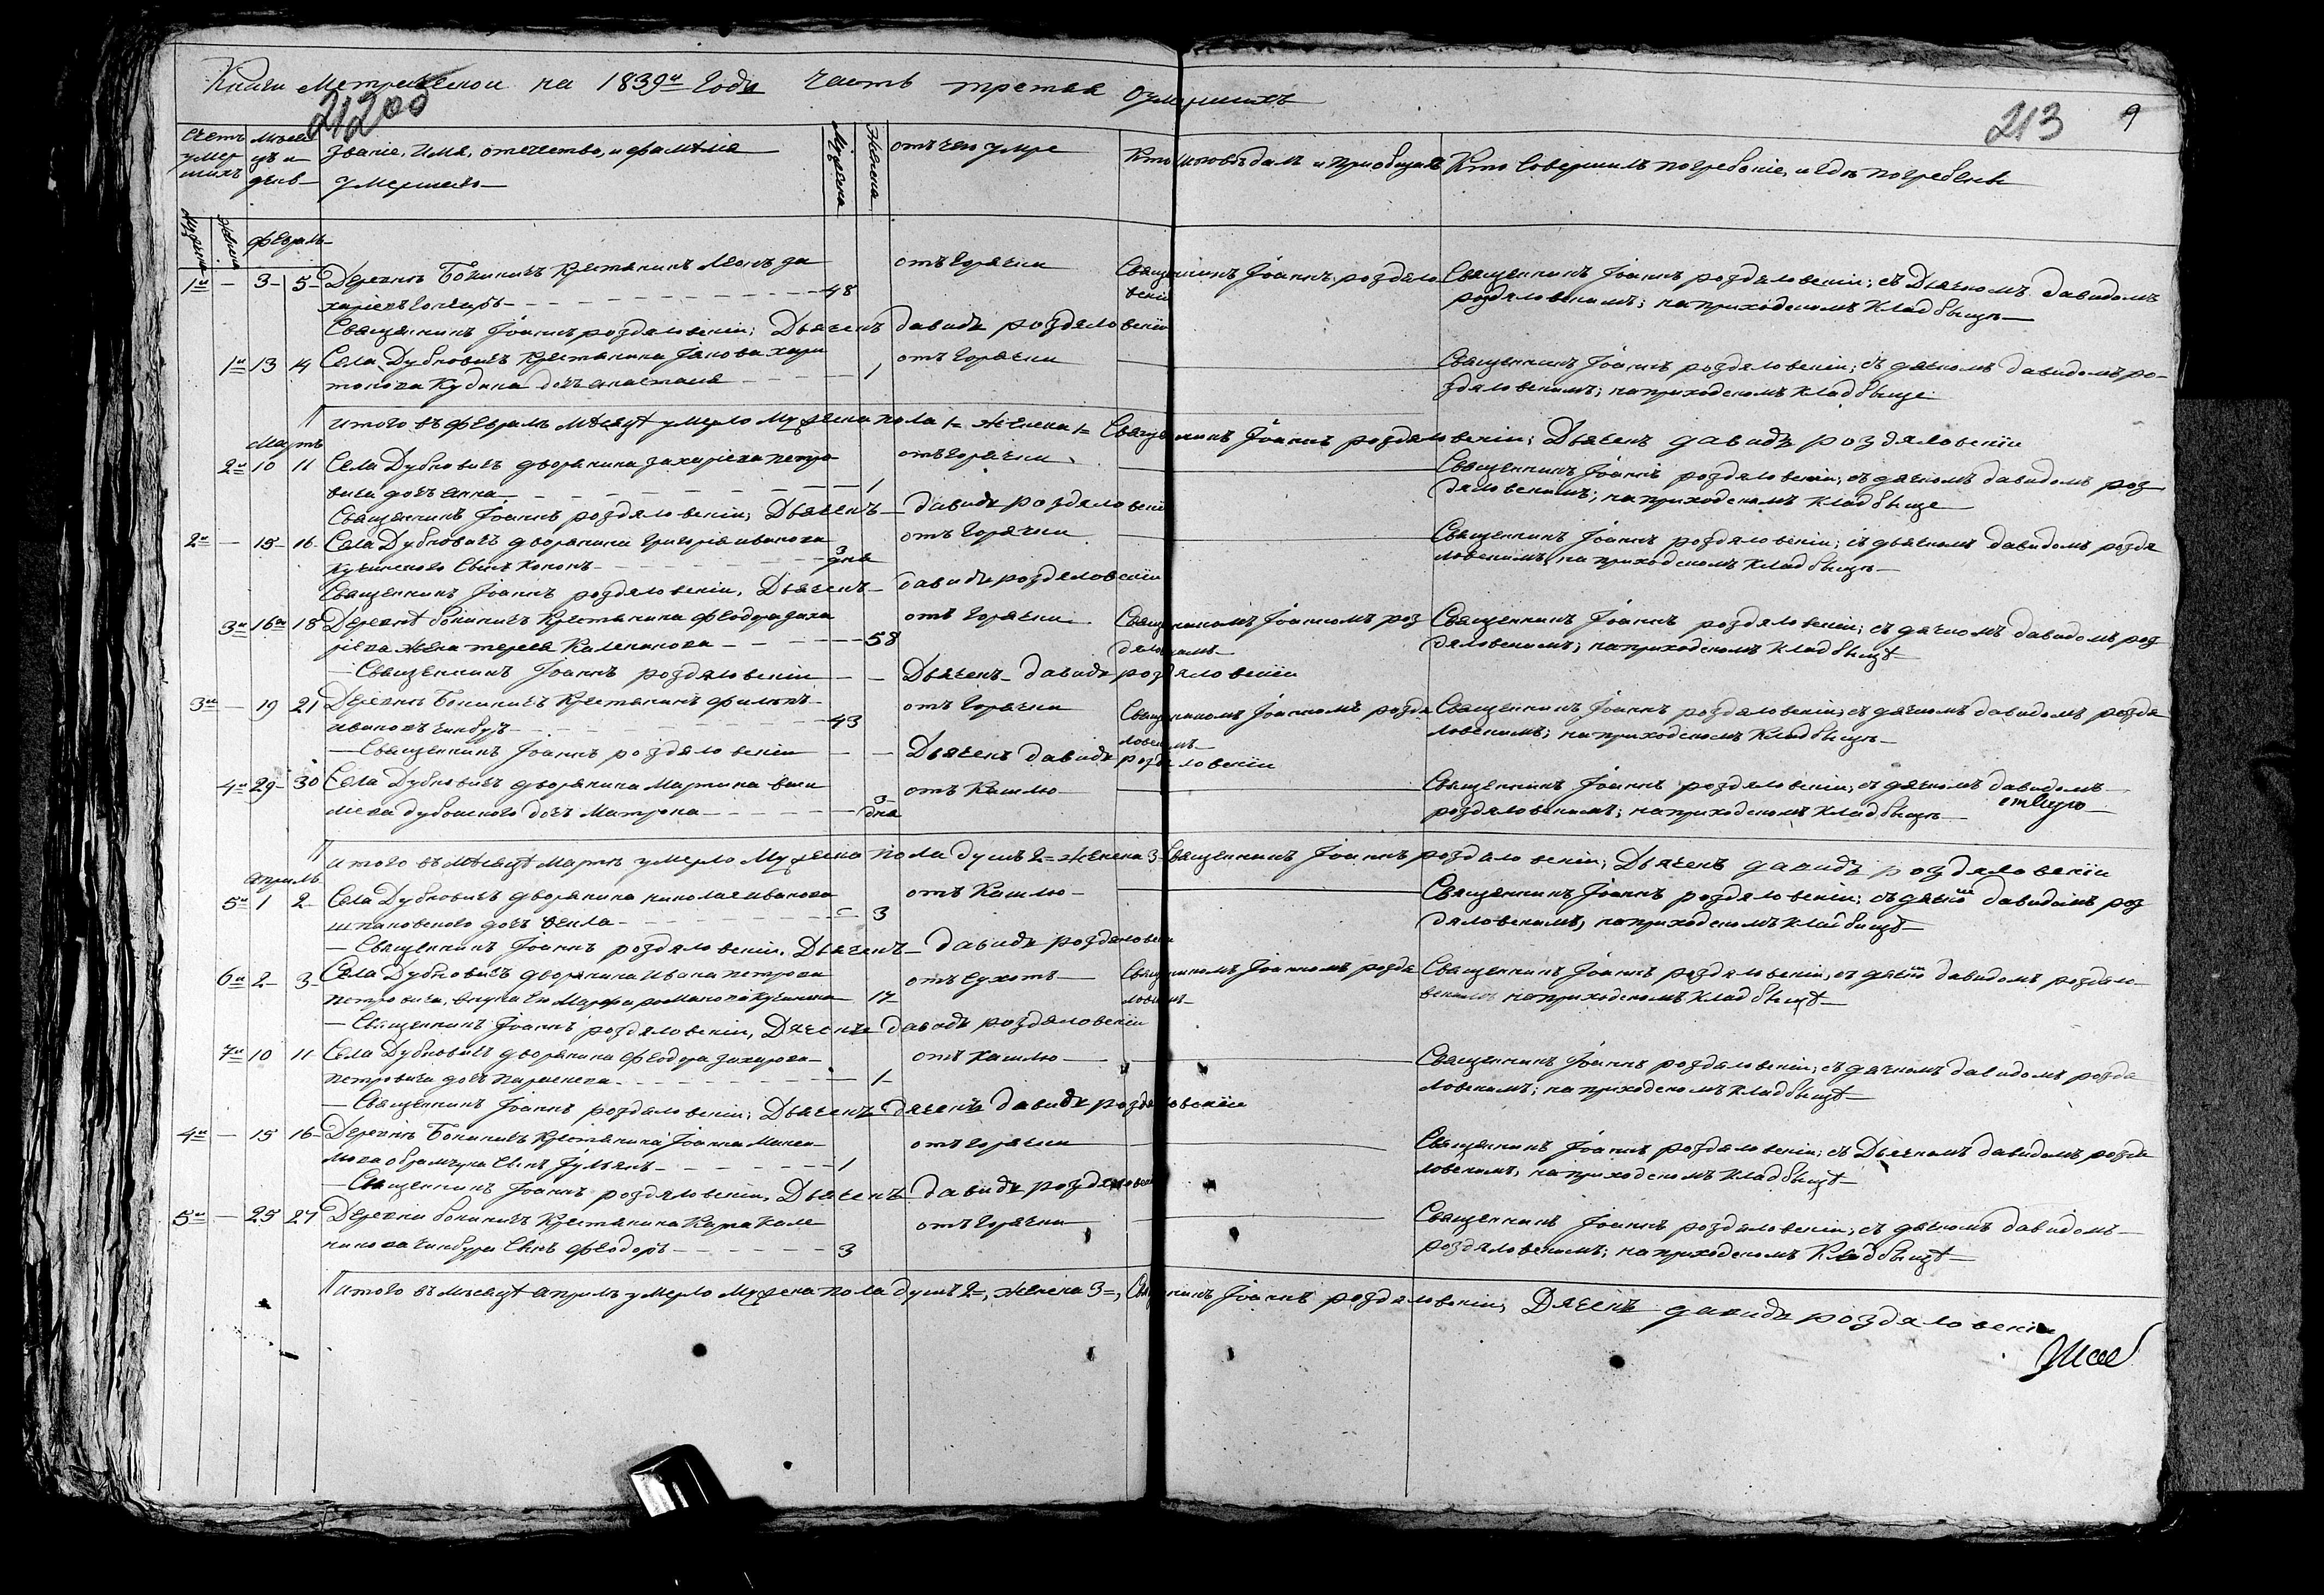 Книги Метрической на 1839й Годъ Часть третяя о умершихъ
21200
213 9
Счетъ умершихъ
Мѣсяцъ и день
Званіе, Имя, отечество, и фамилія
умершаго
Мужеска
Женска
отъ чего умре
Кто исповѣдалъ и приобщалъ
Кто Совершилъ погребеніе, и гдѣ погребены
Мужеска Женска
февраль
1й — 3 5 Деревнѣ Бокиничъ Крестянинъ Леонъ За
харіевъ Гончаръ 48 отъ Горячки
Священникъ Іоаннъ роздяло
вскій
Священникъ Іоаннъ роздяловскій; съ Дьячкомъ давидомъ
роздяловскимъ; на приходскомъ Кладбищѣ
Священникъ Іоаннъ роздяловскій; Дьячекъ давидъ роздяловскій
1й 13 14 Села Дубновичъ Крестянина Іякова хари
тонова Кудина дочъ анастасія 1 отъ Горячки
Священникъ Іоаннъ роздяловскій; съ дячкомъ давидомъ ро-
здяловскимъ; на приходскомъ кладбище
итого въ февралѣ Мѣсяцѣ умерло Мужеска пола 1 женска 1 Священникъ Іоаннъ роздяловскій; Дьячекъ давидъ роздяловскій
Мартъ
2й 10 11 Села Дубновичъ дворянина захаріева петро
вича дочъ анна 1 отъ Горячки
Священникъ Іоаннъ роздяловскій; съ дячкомъ давидомъ роз
дяловскимъ; на приходскомъ кладбище
Священникъ Іоаннъ роздяловскій; Дьячекъ давидъ роздяловскій
2й — 15 16 Села Дубновичъ дворянина Григорія иванова
Кучинского Сынъ Кононъ 3 дня отъ Горячки
Священникъ Іоаннъ роздяловскій; съ дьячкомъ давидомъ роздя
ловскимъ; на приходскомъ кладбищѣ
Священникъ Іоаннъ роздяловскій, Дьячекъ давидъ роздяловскій
3й 16й 18 Деревнѣ бокиничъ Крестянина феодора заха
ріева жена тереса Каленикова 58 отъ Горячки
Священникомъ Іоанномъ роз
дяловскимъ
Священникъ Іоаннъ роздяловскій; съ дячкомъ давидомъ роз
дяловскимъ; на приходскомъ кладбищѣ
Священникъ Іоаннъ роздяловскій Дьячекъ давидъ роздяловскій
3й — 19 21 Деревнѣ Бокиничъ Крестянинъ филипъ
ивановъ 43 отъ Горячки
Священникомъ Іоанномъ роздя
ловскимъ
Священникъ Іоаннъ роздяловскій; съ дячкомъ давидомъ роздя
ловскимъ; на приходскомъ кладбищѣ
Священникъ Іоаннъ роздяловскій Дьячекъ давидъ роздяловскій
4й 29 30 Села Дубновичъ дворянина Мартина васи
лієва дубонского дочъ Матрона 3 дня отъ Кашлю
Священникъ Іоаннъ роздяловскій; съ дячкомъ давидомъ
роздяловскимъ; на приходскомъ кладбищѣ
итого въ Мѣсяцѣ Мартѣ умерло Мужеска пола душъ 2 женска 3 Священникъ Іоаннъ роздяловскій; Дьячекъ давидъ роздяловскій
апрѣль
5й 1 2 Села Дубновичъ дворянина николая иванова
шпановского дочъ Фекла 3 отъ Кашлю
Священникъ Іоаннъ роздяловскій; съ дячко давидомъ роз
дяловскимъ, на приходскомъ кладбищѣ
Священникъ Іоаннъ роздяловскій, Дьячекъ давидъ роздяловскій
6й 2 3 Села Дубновичъ дворянина Ивана петрова
петровича, внука его Марфа романова Кучинска 17 отъ Сухотъ
Священникомъ Іоанномъ роздя
ловскимъ
Священникъ Іоаннъ роздяловскій, съ дячко давидомъ роздяло
вскимъ на приходскомъ кладбищѣ
Священникъ Іоаннъ роздяловскій, Дячекъ давидъ роздяловскій
7й 10 11 Села Дубновичъ дворянина феодора захарова
петровича дочъ параскева 1 отъ кашлю
Священникъ Іоаннъ роздяловскій; съ дячкомъ давидомъ роздя
ловскимъ; на приходскомъ кладбищѣ
Священникъ Іоаннъ роздяловскій; Дьячекъ дячекъ давидъ роздяловскій
4й — 15 16 Деревнѣ Бокиничъ Крестянина Іоанна Макси
мова обрамчука Сынъ Іулъянъ 1 отъ горячки
Священникъ Іоаннъ роздяловскій; съ Дьячкомъ давидомъ роздя
ловскимъ, на приходскомъ кладбищѣ
Священникъ Іоаннъ роздяловскій, Дьячекъ давидъ роздяловскій
5й — 25 27 Деревни бокиничъ Крестянина Карпа Кале
никова Сынъ феодоръ 3 отъ горячки
Священникъ Іоаннъ роздяловскій; съ дячкомъ давидомъ
роздяловскимъ; на приходскомъ Кладбищѣ
итого въ мѣсяцѣ апрѣлѣ умерло Мужеска пола душъ 2, женска 3, Священникъ Іоаннъ роздяловскій, Дячекъ давидъ роздяловскій